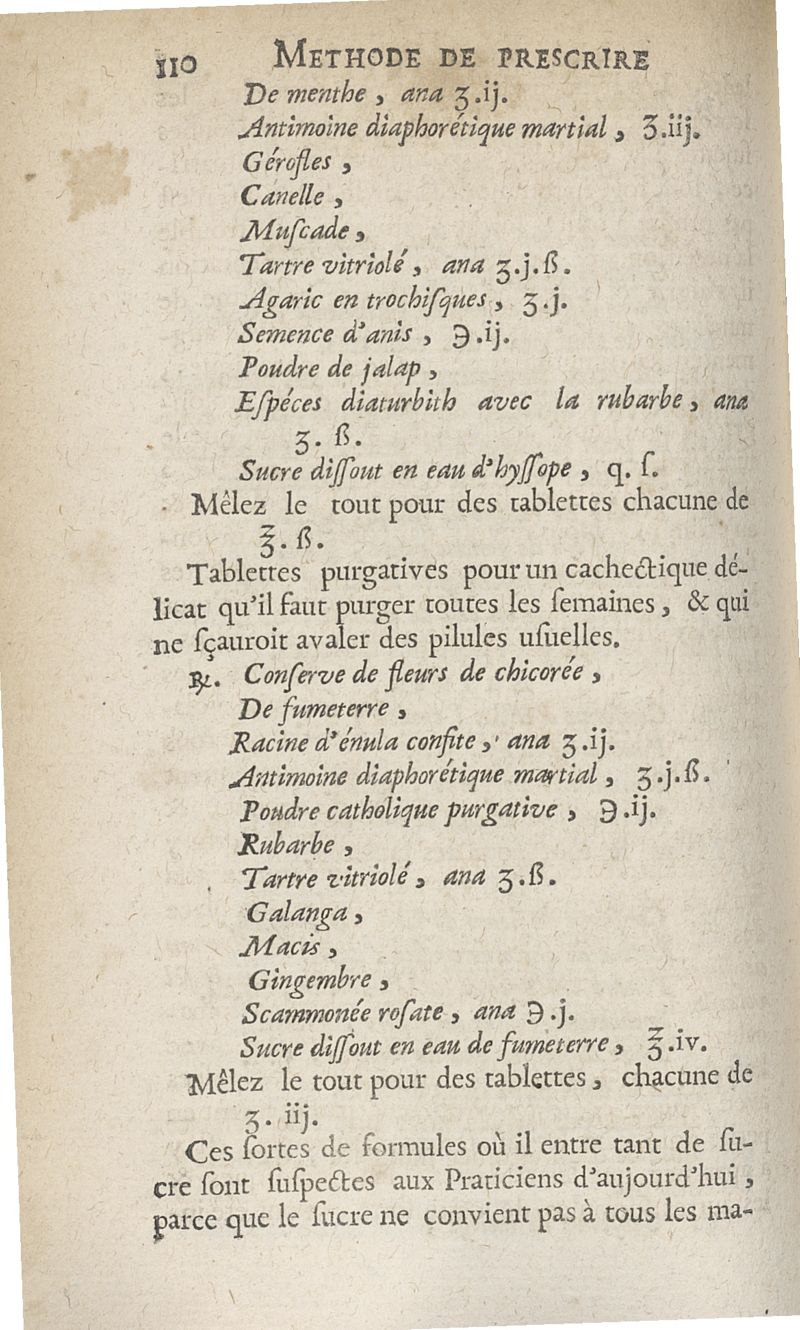 110 METHODE DE PRESCRIRE
De menthe, ana ʒ.ij.
Antimoine diaphorétique martial, ʒ.iij.
Gérofles,
Canelle,
Muſcade,
Tartre vitriolé, ana ʒ.j.ß.
Agaric en trochiſques, ʒ.j.
Semence d'anis, ℈.ij.
Poudre de jalap,
Eſpéces diaturbith avec la rubarbe, ana
ʒ. ß.
Sucre diſſout en eau d'hyſſope, q. ſ.
Mêlez le tout pour des tablettes chacune de
℥. ß.
Tablettes purgatives pour un cachectique dé-
licat qu'il faut purger toutes les ſemaines, & qui
ne ſçauroit avaler des pilules uſuelles.
℞. Conſerve de fleurs de chicorée,
De fumeterre,
Racine d'énula confite, ana ʒ.ij.
Antimoine diaphorétique martial, ʒ.j.ß.
Poudre catholique purgative, ℈.ij.
Rubarbe,
Tartre vitriolé, ana ʒ.ß.
Galanga,
Macis,
Gingembre,
Scammonée roſate, ana ℈.j.
Sucre diſſout en eau de fumeterre, ℥.iv.
Mêlez le tout pour des tablettes, chacune de
ʒ. iij.
Ces ſortes de formules où il entre tant de ſu-
cre ſont ſuſpectes aux Praticiens d'aujourd'hui,
parce que le ſucre ne convient pas à tous les ma-